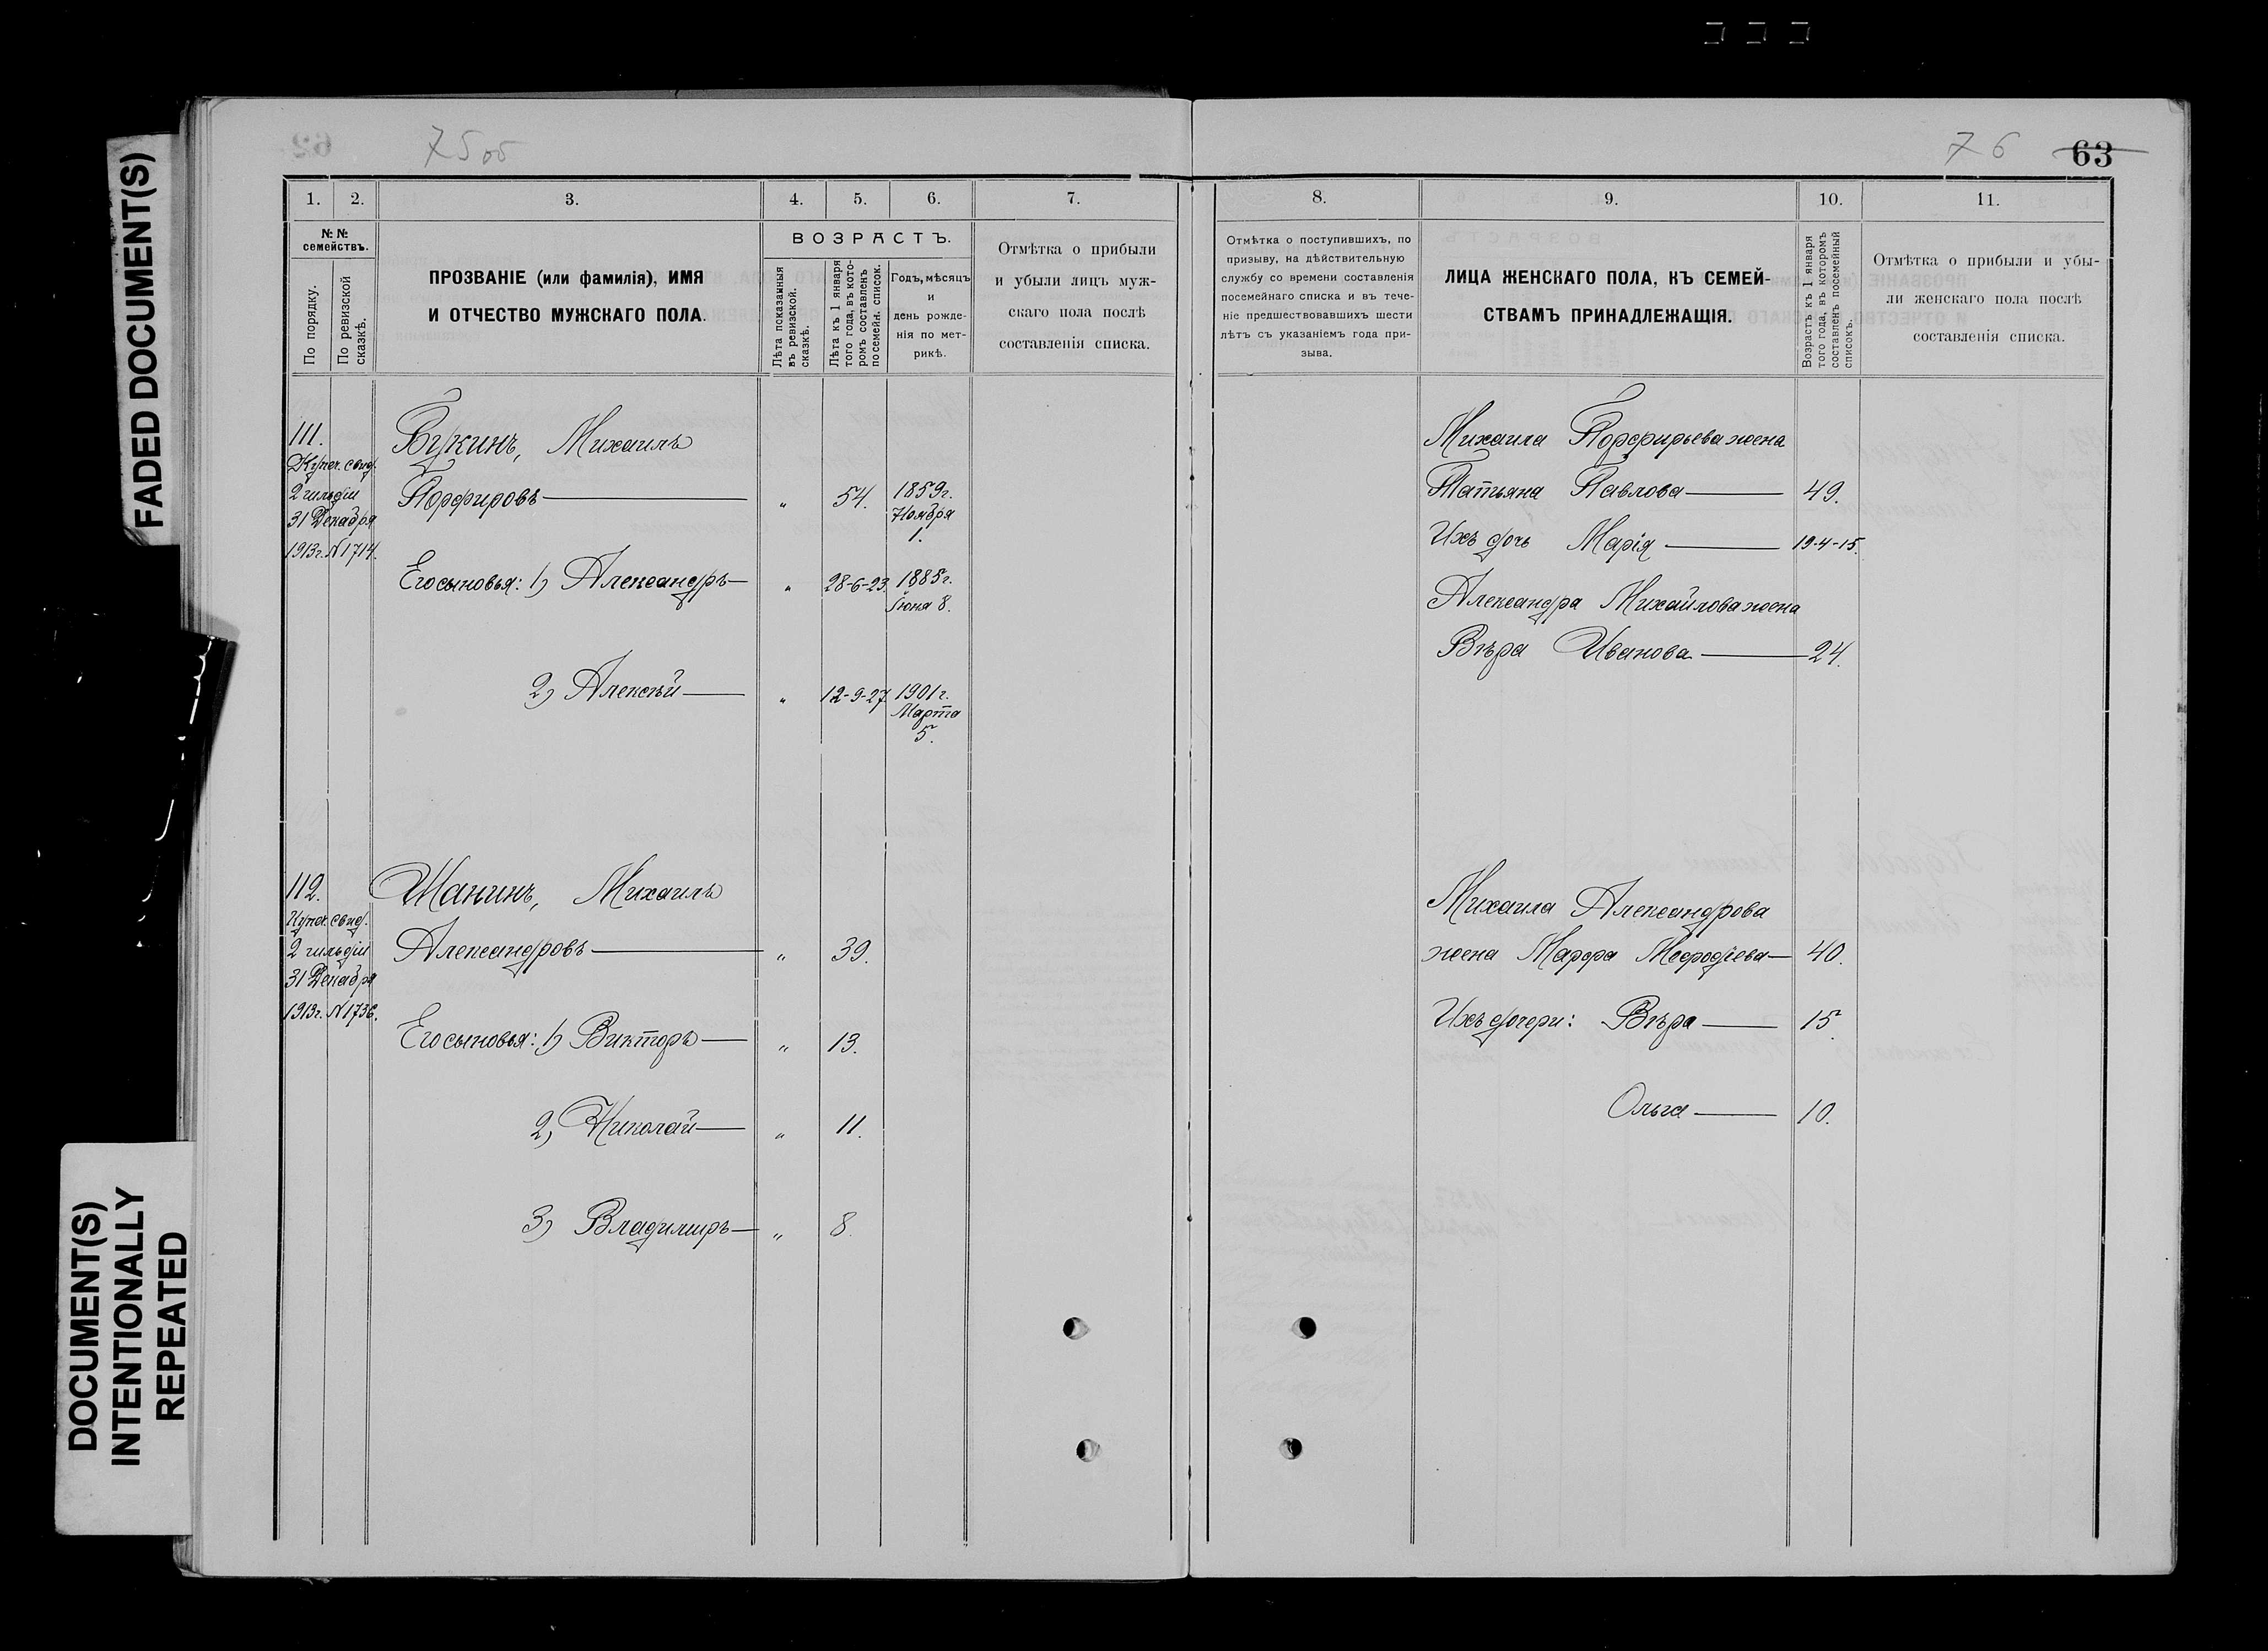 FADED DOCUMENT(S)
DOCUMENT(S)
INTENTIONALLY
REPEATED
75об
1. 2. 3. 4. 5. 6. 7.
№ №
семействъ.
По порядку.
По ревизской
сказкѣ.
ПРОЗВАНІЕ (или фамилія), ИМЯ
И ОТЧЕСТВО МУЖСКАГО ПОЛА.
ВОЗРАСТЪ.
Лѣта показанныя
въ ревизской.
сказкѣ.
Лѣта къ 1 января
того года, въ кото-
ромъ составленъ
посемейн. список.
Годъ, мѣсяцъ
и
день рожде-
нія по мет-
рикѣ.
Отмѣтка о прибыли
и убыли лицъ муж-
скаго пола послѣ
составленія списка.
111.
Купеч. свид.
2 гильдіи
31 Декабря
1913г. № 1714.
Букинъ, Михаилъ
Порфировъ — „ 54. 1859г.
Ноября
1.
Его сыновья: 1) Александръ — „ 28-6-23. 1885г.
Іюня 8.
2) Алексѣй — „ 12-9-27. 1901г.
Марта
5.
112.
Купеч. свид.
2 гильдіи
31 Декабря
1913г. № 1736.
Шанинъ, Михаилъ
Александровъ — „ 39.
Его сыновья: 1) Викторъ — „ 13.
2) Николай — „ 11.
3) Владимиръ — „ 8.
76 63
8. 9. 10. 11.
Отмѣтка о поступившихъ, по
призыву, на дѣйствительную
службу со времени составленія
посемейнаго списка и въ тече-
ніе предшествовавшихъ шести
лѣтъ съ указаніемъ года при-
зыва.
ЛИЦА ЖЕНСКАГО ПОЛА, КЪ СЕМЕЙ-
СТВАМЪ ПРИНАДЛЕЖАЩІЯ.
Возрастъ къ 1 января
того года, въ которомъ
составленъ посемейный
списокъ.
Отмѣтка о прибыли и убы-
ли женскаго пола послѣ
составленія списка.
Михаила Порфирьева жена
Татьяна Павлова — 49.
Ихъ дочь Марія — 19-4-15.
Александра Михайлова жена
Вѣра Иванова — 24.
Михаила Александрова
жена Марфа Мефодіева — 40.
Ихъ дочери: Вѣра — 15.
Ольга — 10.